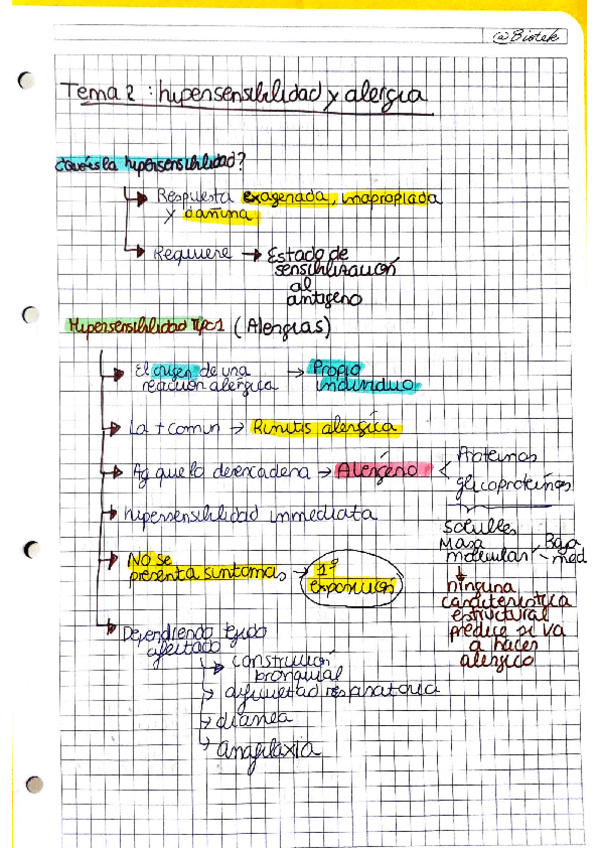 @Biotek
Tema 2 : hipersensibilidad y alergia
¿Qué es la hipersensibilidad?
Respuesta exagerada, inapropiada
y dañina
Requiere → Estado de
sensibilización
al
antígeno
Hipersensibilidad Tipo 1 (Alergias)
El origen de una → Propio
reacción alérgica individuo
La + común → Rinitis alérgica
Ag que lo desencadena → Alérgeno < Proteínas
glicoproteínas
Solubles
Masa
molecular Baja
med
ninguna
característica
estructural
predice si va
a hacer
alérgico
hipersensibilidad immediata
No se
presenta síntomas → 1º
exposición
Dependiendo tejido
afectado
construcción
bronquial
dificultad respiratoria
diarrea
anafilaxia